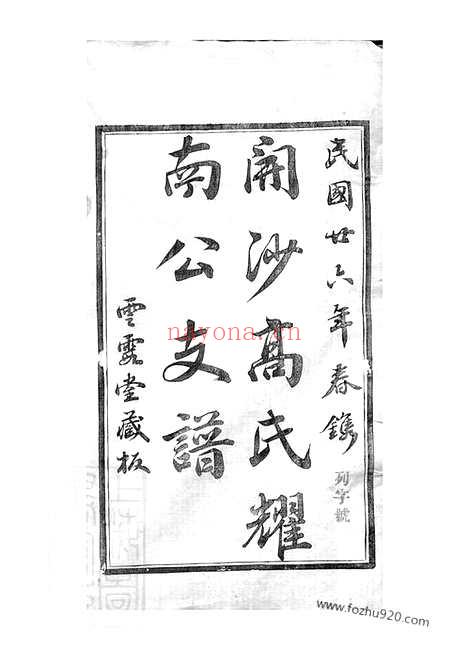 民國廿六年春鐫
列字號
開沙高氏耀
南公支譜
雲露堂藏板
nayona.cn
www.fozhu920.com